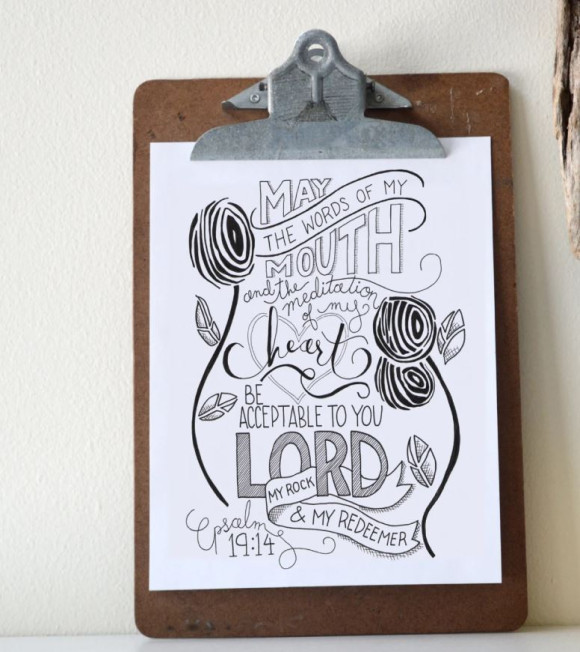 MAY
THE WORDS OF MY
MOUTH
and the meditation
of my
heart
BE
ACCEPTABLE TO YOU
LORD
MY ROCK
& MY REDEEMER
psalm
19:14